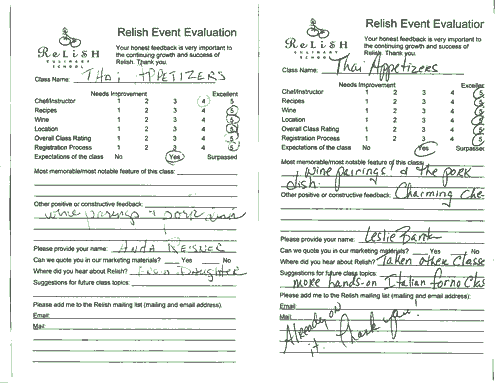 Relish Event Evaluation
Your honest feedback is very important to
the continuing growth and success of
Relish. Thank you.
ReLiSH
CULINARY
SCHOOL
Class Name: THAI APPETIZERS
Needs Improvement Excellent
Chef/Instructor 1 2 3 4 5
Recipes 1 2 3 4 5
Wine 1 2 3 4 5
Location 1 2 3 4 5
Overall Class Rating 1 2 3 4 5
Registration Process 1 2 3 4 5
Expectations of the class No Yes Surpassed
Most memorable/most notable feature of this class:
Other positive or constructive feedback:
wine parings & pork
Please provide your name: ANDA
Can we quote you in our marketing materials? Yes No
Where did you hear about Relish? FROM DAUGHTER
Suggestions for future class topics:
Please add me to the Relish mailing list (mailing and email address).
Email:
Mail:
Relish Event Evaluation
Your honest feedback is very important to
the continuing growth and success of
Relish. Thank you.
ReLiSH
CULINARY
SCHOOL
Class Name: Thai Appetizers
Needs Improvement Excellen
Chef/Instructor 1 2 3 4 5
Recipes 1 2 3 4 5
Wine 1 2 3 4 5
Location 1 2 3 4 5
Overall Class Rating 1 2 3 4 5
Registration Process 1 2 3 4 5
Expectations of the class No Yes Surpasse
Most memorable/most notable feature of this class:
wine pairings! & the pork
dish.
Other positive or constructive feedback: Charming Che
Please provide your name: Leslie
Can we quote you in our marketing materials? Yes No
Where did you hear about Relish? Taken other Classe
Suggestions for future class topics:
more hands-on Italian forno Clas
Please add me to the Relish mailing list (mailing and email address):
Email:
Mail:
Already on
it. Thank you!